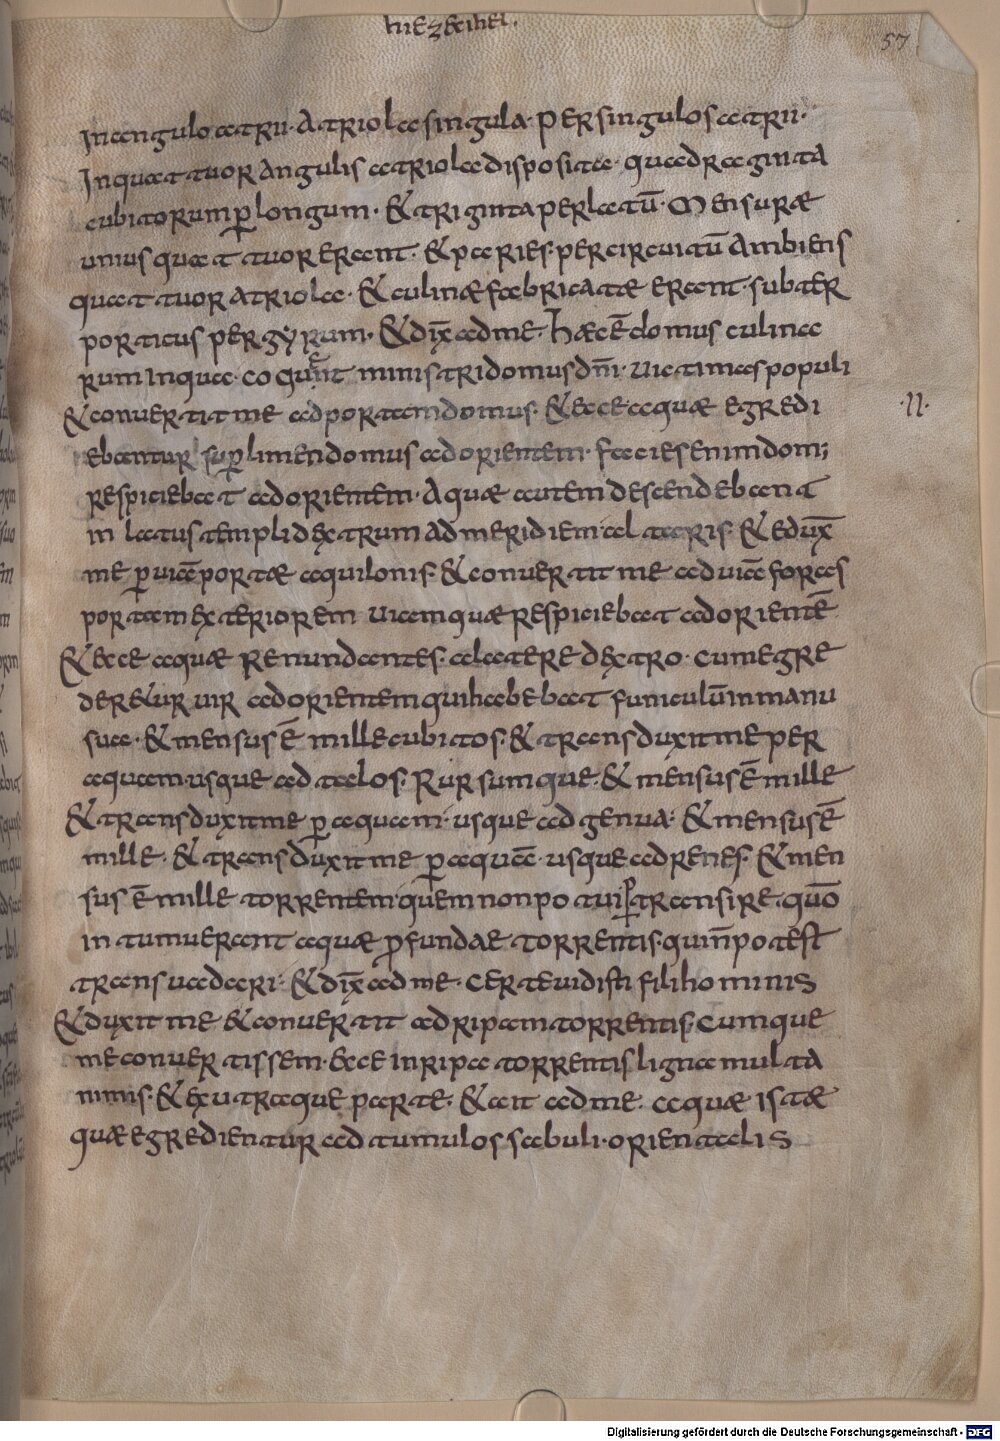 hiezechiel.
57
In angulo atrii· Atriola singula· per singulos atrii·
In quattuor angulis atriola disposita· quadraginta
cubitorum p̱ longum· & triginta per latū· Mensuræ
unius quattuor erant· & paries· per circuitū ambiens
quattuor atriola· & culinæ fabricatæ erant· subter
porticus per gyrum· & dix̄ ad me· Haec ē domus culina
rum in qua· coquent ministri domus dn̄i· uictimas populi
& conuertit me ad portam domus· & ecce aquæ egredi
·II·
ebantur sup̱ limen domus ad orientem· facies enim dom;
respiciebat ad orientem· Aquæ autem descendebant
in latus templi dextrum ad meridiem altaris· & edux̄
me p̱ uiā portæ aquilonis· & conuertit me ad uiā foras
portam exteriorem uiam quæ respiciebat ad orientē
& ecce aquæ renundantes· a latere dextro· cum egre
deretur uir ad orientem qui habebat funiculū in manu
sua· & mensus ē mille cubitos· & transduxit me per
aquam usque ad talos· Rursumque· & mensus ē mille
& transduxit me p̱ aquam· usque ad genua· & mensus ē
mille· & transduxit me p̱ aquā· usque ad renes· & men
sus ē mille torrentem quem non potui p̱transire· quō
intumuerant aquæ p̱fundae torrentis· qui n̄ potest
transuadari· & dix̄ ad me· certe uidisti fili hominis
& duxit me & conuertit ad ripam torrentis· Cumque
me conuertissem· ecce in ripa torrentis ligna multa
nimis· & ex utraque parte· & ait ad me· aquæ istæ
quæ egredientur ad tumulos sabuli· orientalis
Digitalisierung gefördert durch die Deutsche Forschungsgemeinschaft - DFG